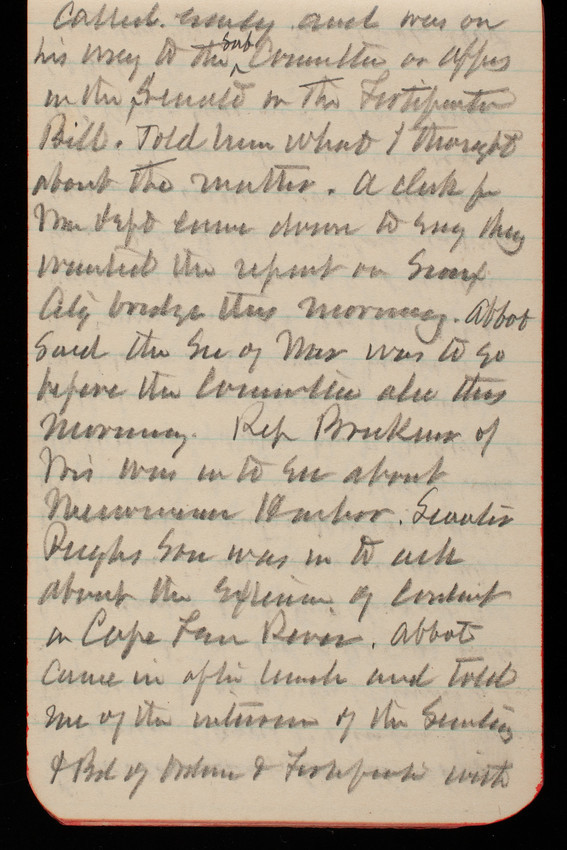 called early and was on
his way to the sub Committee on Appro
in the Senate on the Fortification
Bill. Told him what I thought
about the matter. A clerk fr
War Dept came down to say they
wanted the report on Sioux
City bridge this morning. Abbot
said the Sec of War was to go
before the Committee also this
morning. Rep Brickner of
Wis was in to see about
Menominee Harbor. Senator
Pughs Son was in to ask
about the of
on Cape Fear River. Abbot
came in after lunch and told
me of the interview of the Secretary
& Bd of Ordnce & Fortificatn with